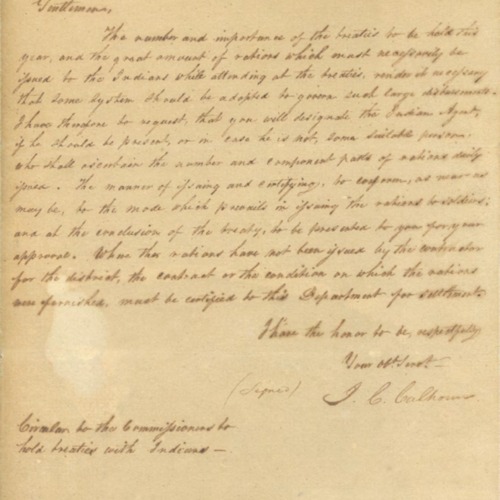 Gentlemen,
The number and importance of the treaties to be held this
year, and the great amount of rations which must necessarily be
issued to the Indians while attending at the treaties, render it necessary
that some system should be adopted to govern such large disbursements.
I have therefore to request, that you will designate the Indian Agent,
if he should be present, or in case he is not, some suitable person
who shall ascertain the number and component parts of rations daily
issued. The manner of issuing and certifying, to conform, as near as
may be, to the mode which prevails in issuing the rations to soldiers;
and at the conclusion of the treaty, to be presented to you for your
approval. Where the rations have not been issued by the contractor
for the district, the contract or the condition on which the rations
were furnished, must be certified to this Department for settlement.
I have the honor to be, respectfully
Your Obt. Servt.
(Signed) J. C. Calhoun
Circular to the Commissioners to
hold treaties with Indians —